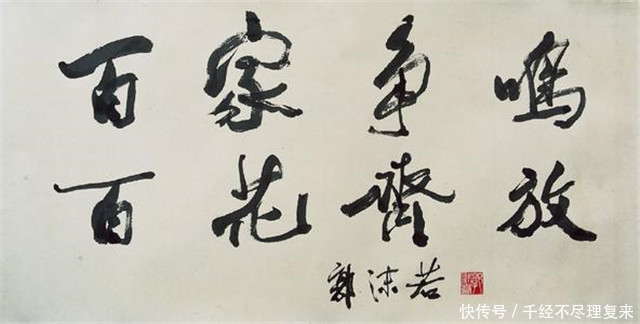 百家争鳴
百花齊放
郭沫若
快传号/千经不尽理复来